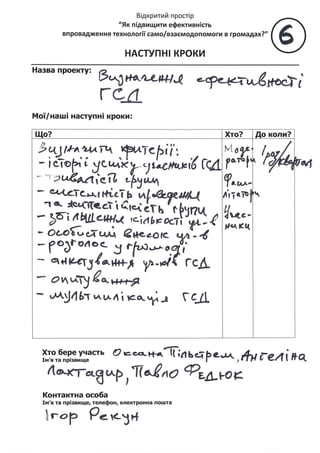 Відкритий простір
"Як підвищити ефективність
впровадження технології само/взаємодопомоги в громадах?"
6
НАСТУПНІ КРОКИ
Назва проекту: Визначення ефективності
ГСД
Мої/наші наступні кроки:
Що? Хто? До коли?
Визначити критерії:
- історії успіху учасників ГСД
- тривалість групи
- системність проведення
та життєстійкість групи
- збільшення кількості уч-в
- особистий внесок уч-в
- розголос у громаді
- анкетування уч-ків ГСД
- опитування
- мультиплікація ГСД
Моде-
ратори
Фаси-
літатори
Учас-
ники
1 раз/
квартал
Хто бере участь Оксана Пільстрем, Ангеліна
Ім'я та прізвище
Лахтадир, Павло Федюк
Контактна особа
Ім'я та прізвище, телефон, електронна пошта
Ігор Рекун